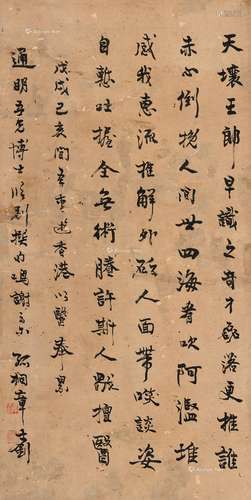 天壤王郎早識之奇才磊落更推誰
赤心倒挽人間世四海胥吹阿濫堆
感我惠流推解外砭人面帶咲談姿
自慙吐握全無術賸許斯人壇醫
戊戌己亥間余重遊香港以醫奉累
通明吾兄博士臨別撰句鳴謝 孤桐章士釗